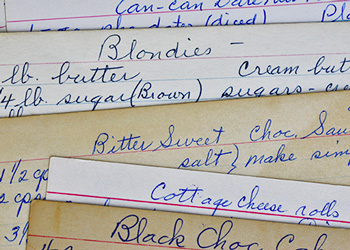 Can-can
(diced)
Blondies -
lb. butter Cream-but
1/4 lb. sugar (Brown) sugars-cre
Bitter Sweet Choc. Sau
salt} make sim
1 1/2 cps
Cottage cheese rolls
Black Choc.